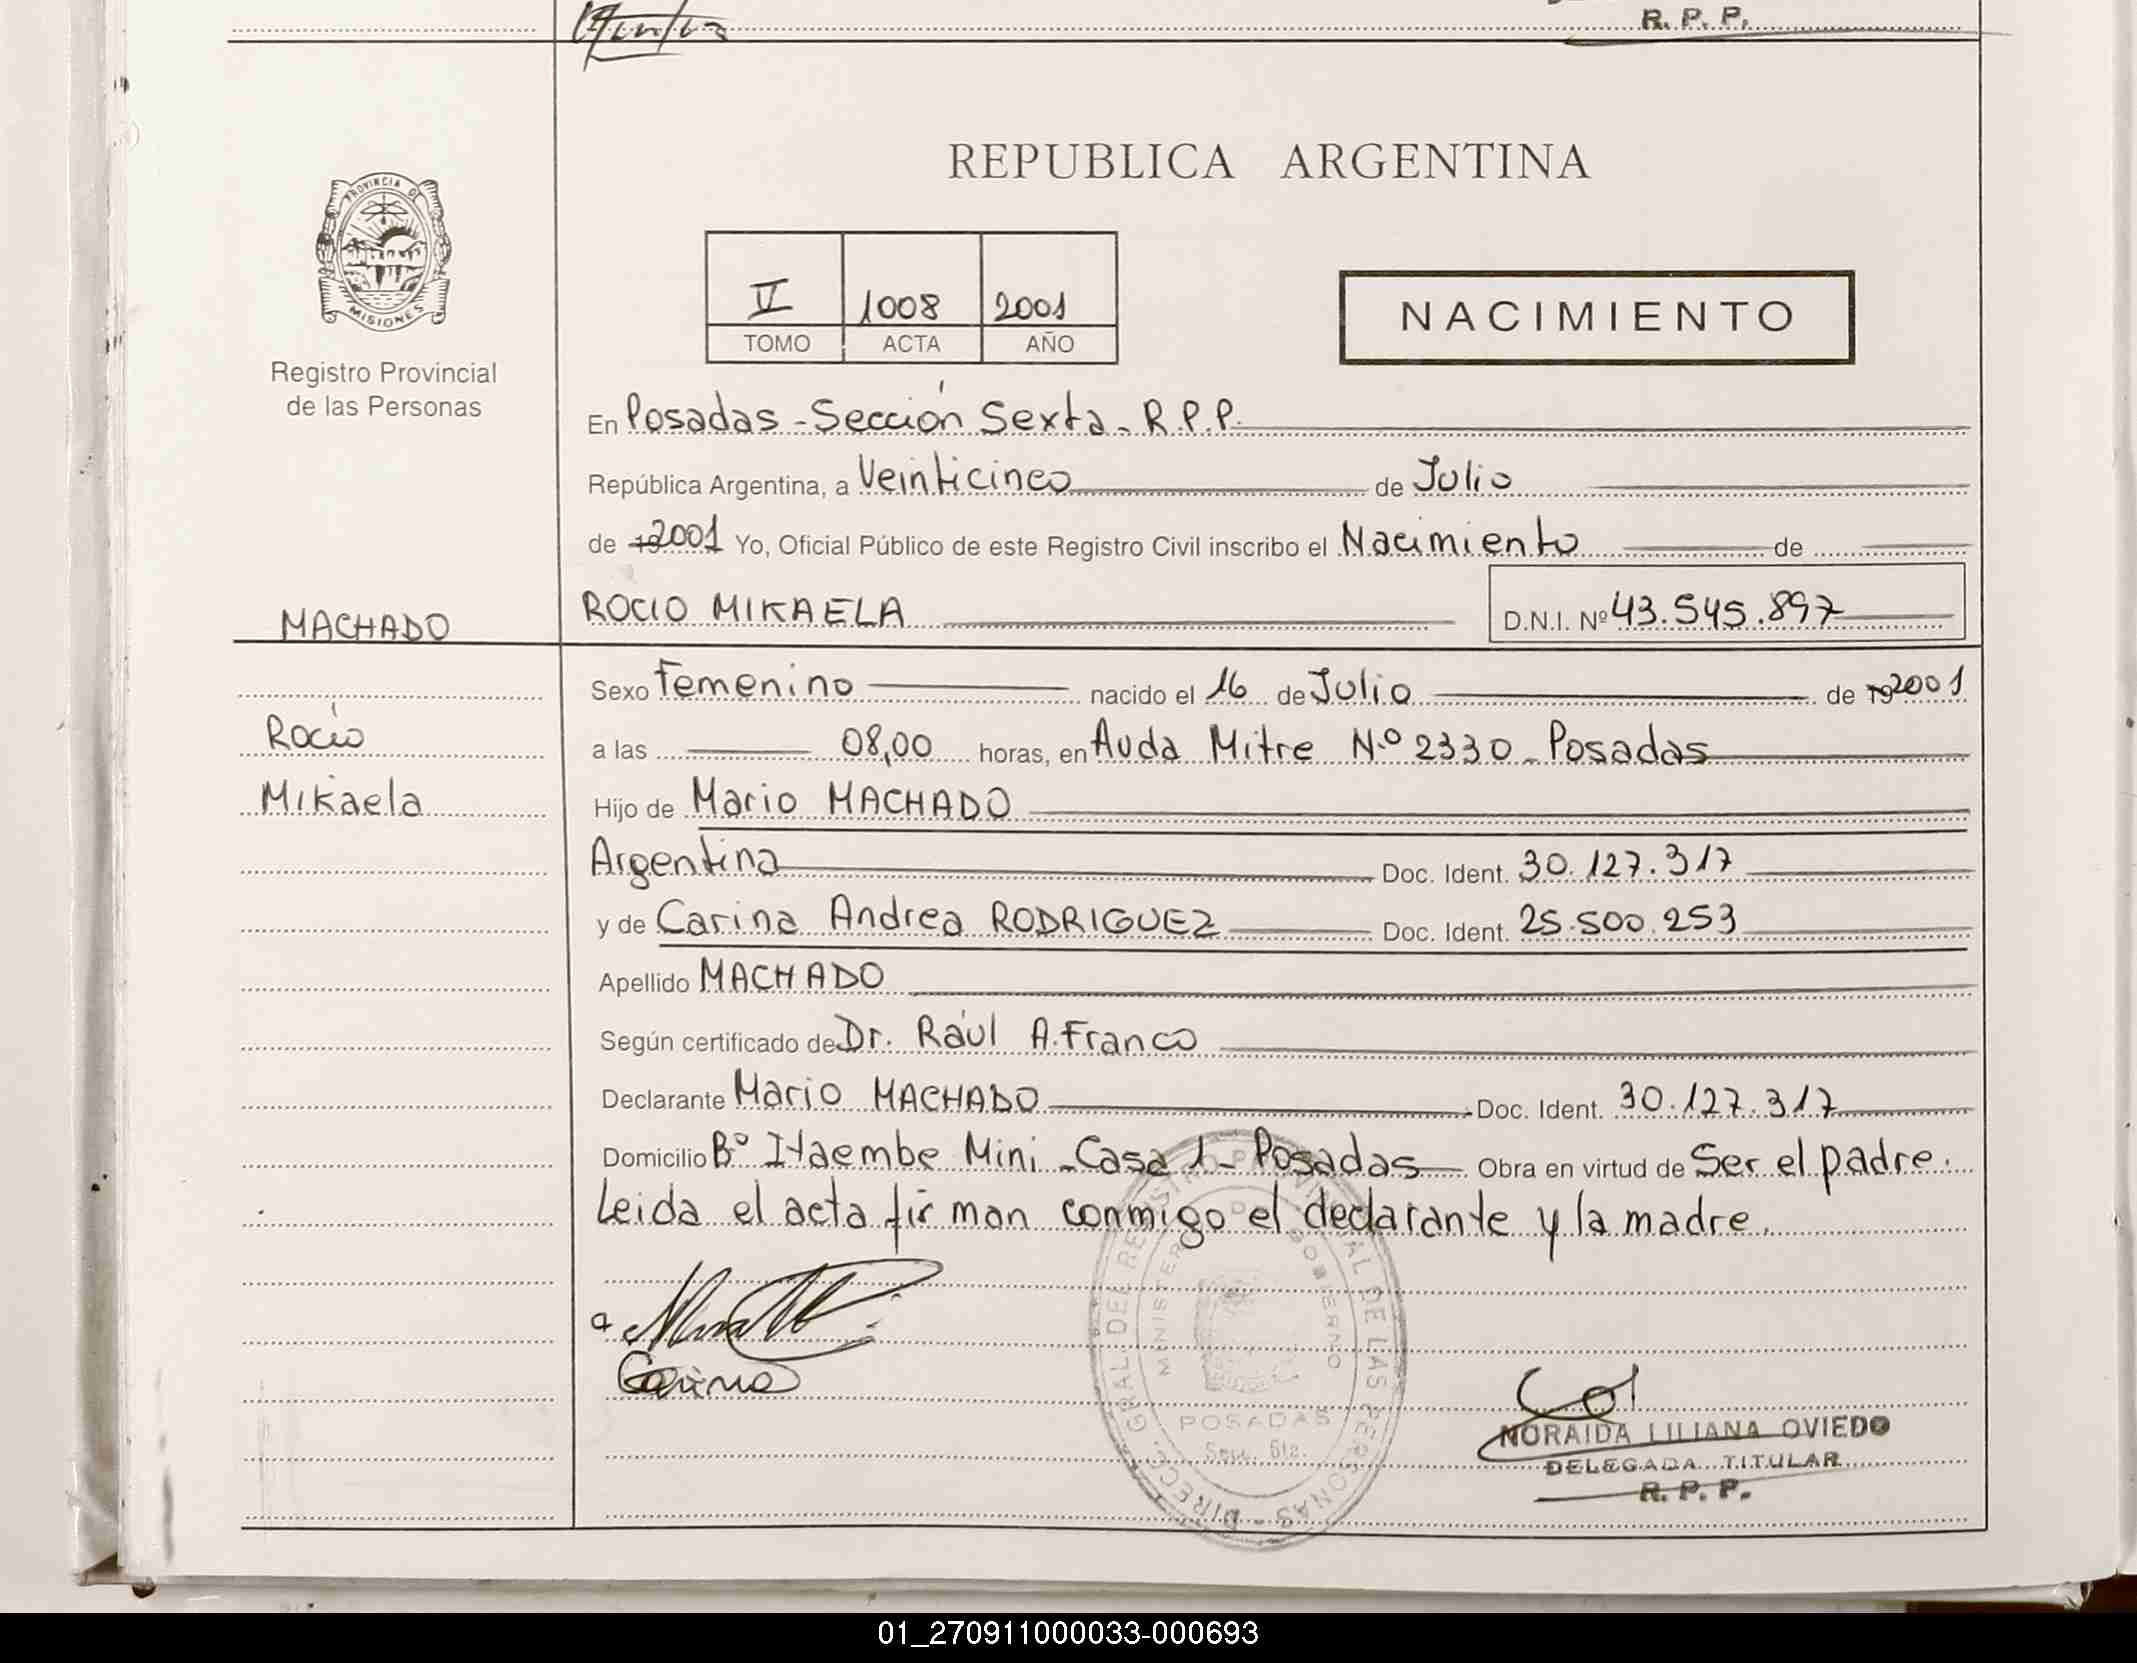 R. P. P.
PROVINCIA DE
MISIONES
Registro Provincial
de las Personas
REPUBLICA ARGENTINA
1008 2001
TOMO ACTA AÑO
NACIMIENTO
En Posadas - Sección Sexta - R.P.P.
República Argentina, a Veinticinco de Julio
de 19 2001 Yo, Oficial Público de este Registro Civil inscribo el Nacimiento de
MACHADO
ROCIO MIKAELA D.N.I. Nº 43.545.897
Sexo Femenino nacido el 16 de Julio de 19 2001
Rocío
a las 08,00 horas, en Avda Mitre N.º 2330 - Posadas
Mikaela
Hijo de Mario MACHADO
Argentina Doc. Ident. 30.127.317
y de Carina Andrea RODRIGUEZ Doc. Ident. 25.500.253
Apellido MACHADO
Según certificado de Dr. Raúl A. Franco
Declarante Mario MACHADO Doc. Ident. 30.127.317
Domicilio Bº Itaembe Mini - Casa 1 - Posadas Obra en virtud de Ser el padre.
Leida el acta firman conmigo el declarante y la madre.
Carina
DIRECC. GRAL. DEL REGISTRO PROVINCIAL DE LAS PERSONAS -
MINISTERIO DE GOBIERNO
POSADAS
Secc. 6ta.
NORAIDA LILIANA OVIEDO
DELEGADA TITULAR
R. P. P.
01_270911000033-000693